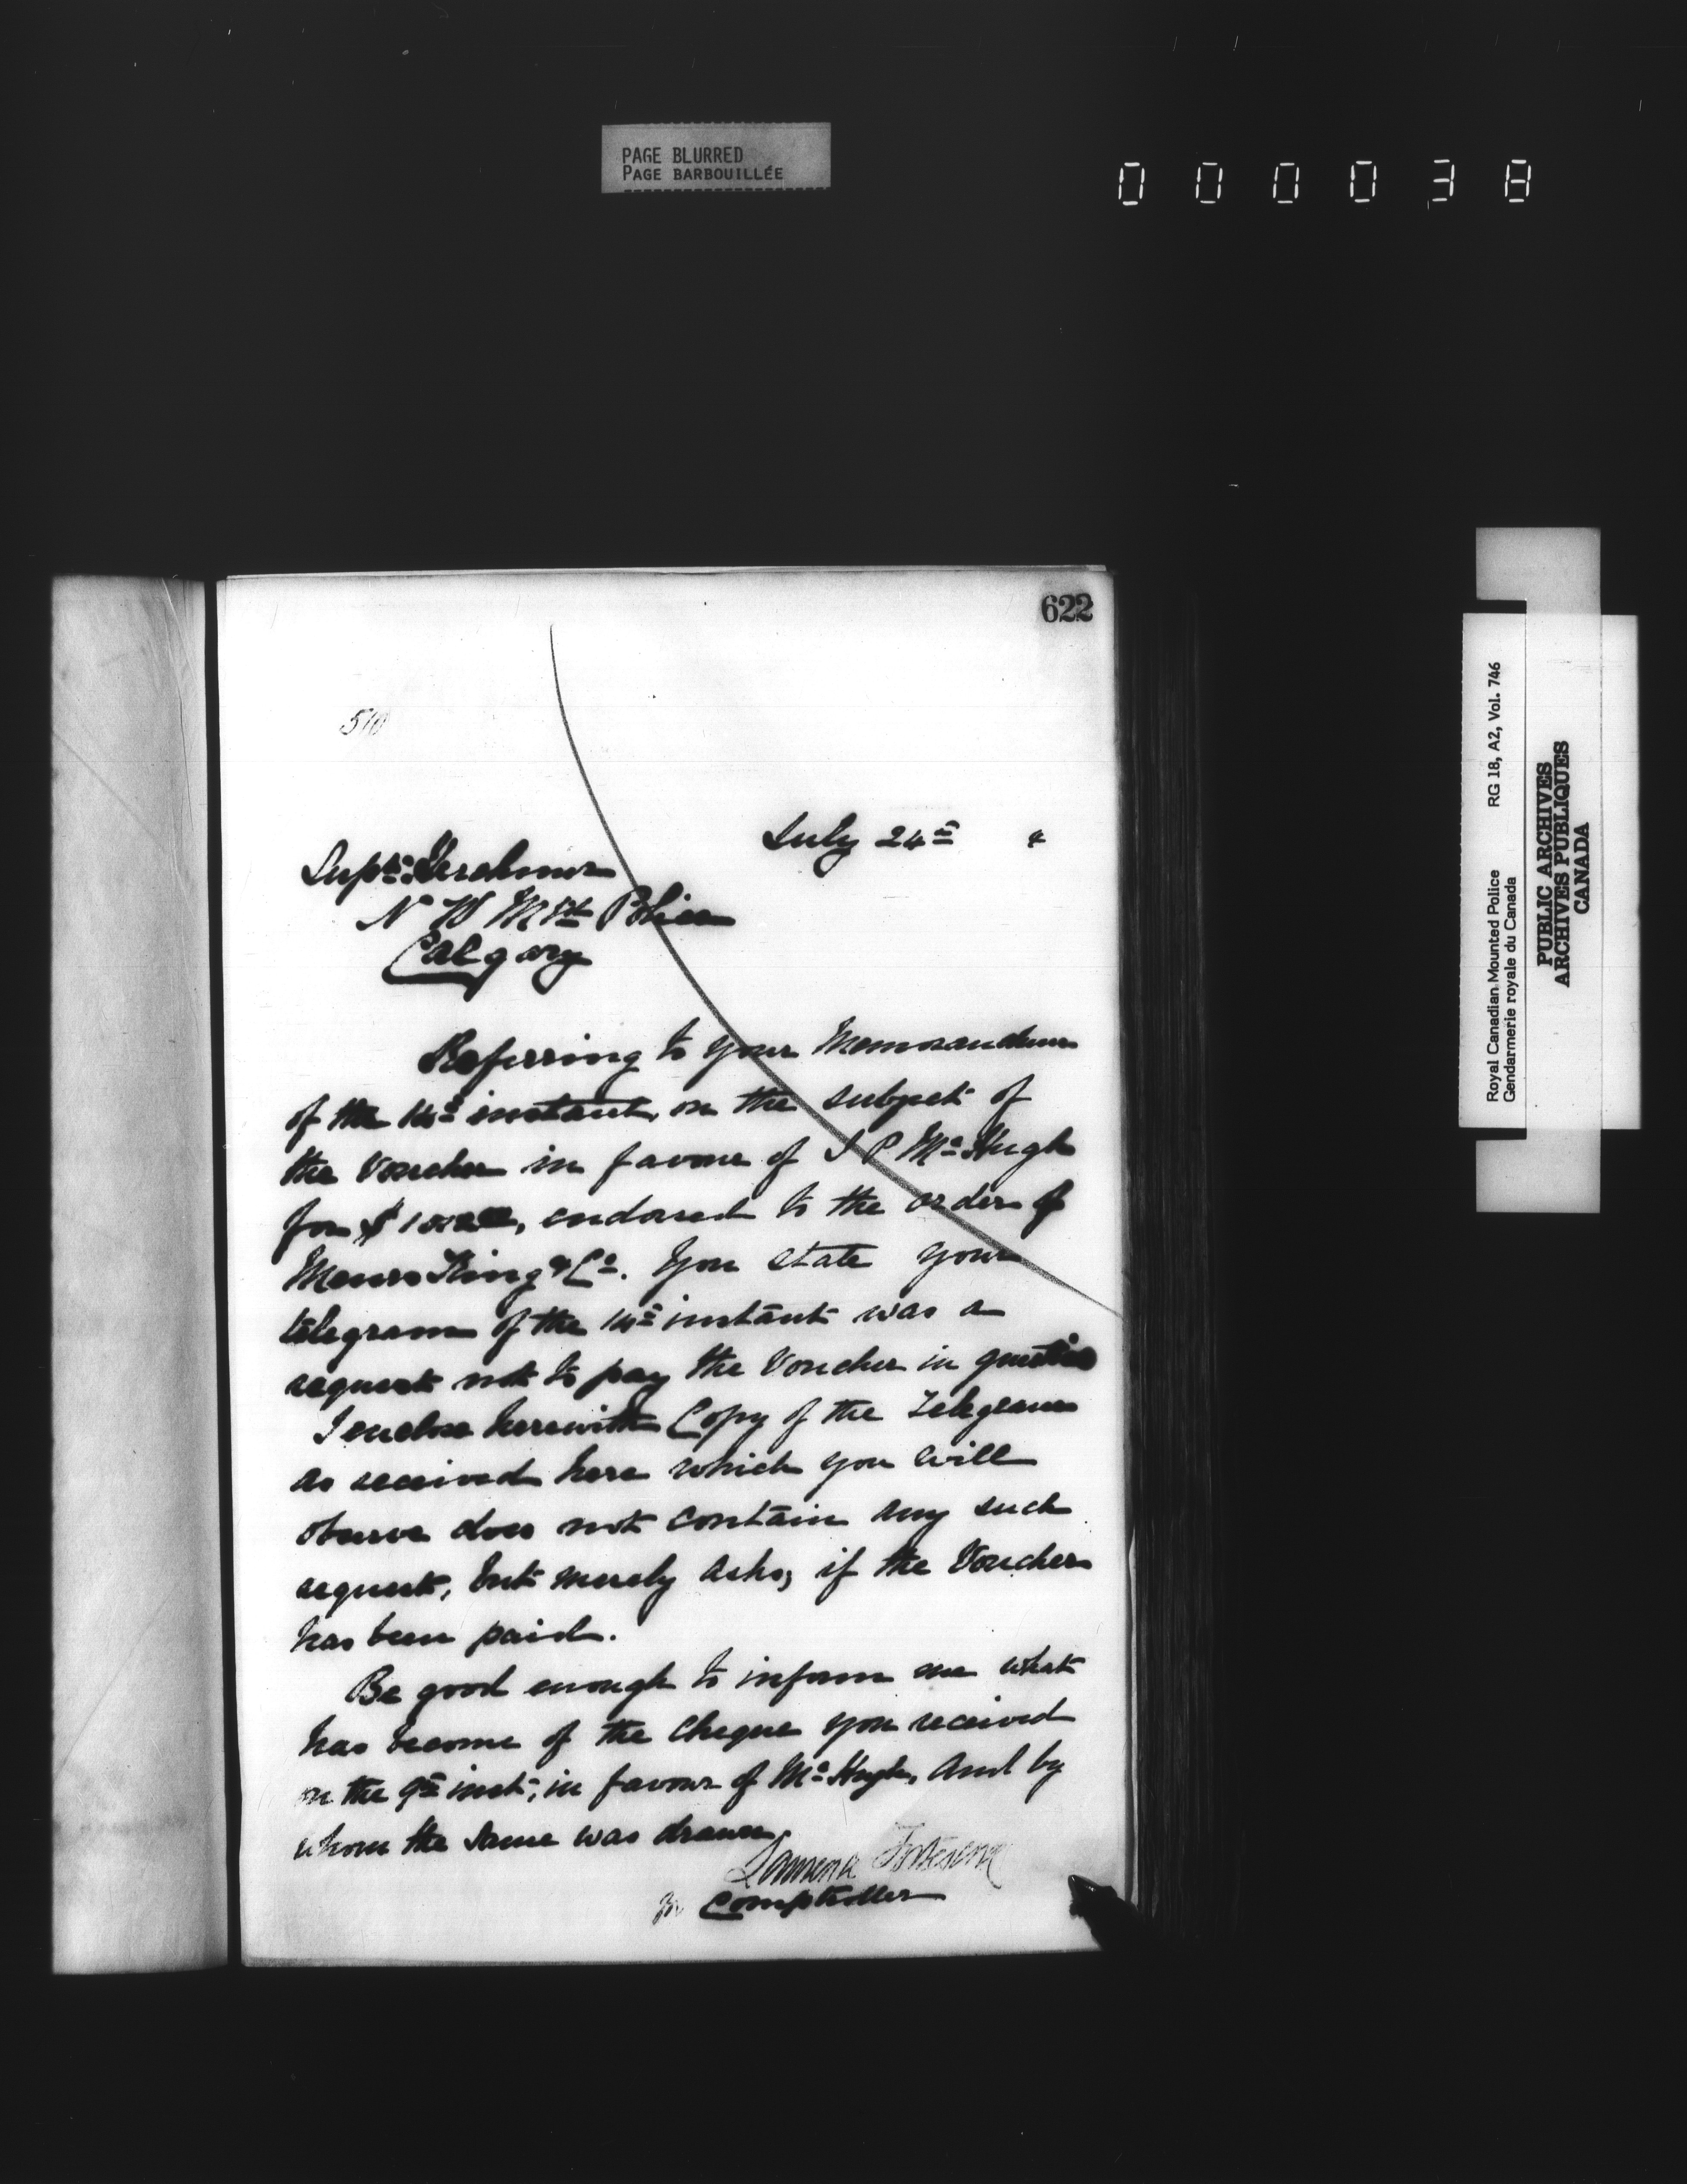 PAGE BLURRED
PAGE BARBOUILLÉE
000038
622
510
July 24th
Supt. Herchmer
N W Mtd Police
Calgary
Referring to your Memorandum
of the 14th instant, on the subject of
the Voucher in favour of J P McHugh
for $, endorsed to the order of
Messrs King & Co. You state your
telegram of the 14th instant was a
request not to pay the Voucher in question
I enclose herewith Copy of the Telegram
as received here which you will
observe does not contain any such
request, but merely asks, if the Voucher
has been paid.
Be good enough to inform me what
has become of the Cheque you received
on the 9th inst, in favour of McHugh, and by
whom the same was drawn.
Fortescue
for Comptroller
Royal Canadian Mounted Police RG 18, A2, Vol. 746
Gendarmerie royale du Canada
PUBLIC ARCHIVES
ARCHIVES PUBLIQUES
CANADA